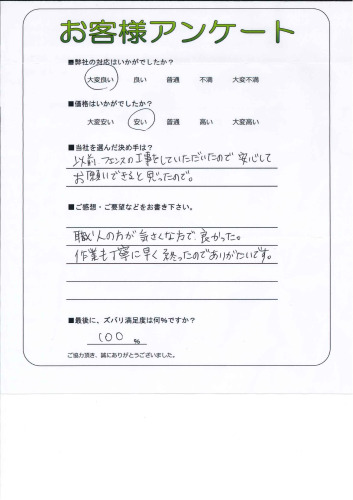 お客様アンケート
■弊社の対応はいかがでしたか?
大変良い 良い 普通 不満 大変不満
■価格はいかがでしたか?
大変安い 安い 普通 高い 大変高い
■当社を選んだ決め手は?
以前、フェンスの工事をしていただいたので安心して
お願いできると思ったので。
■ご感想・ご要望などをお書き下さい。
職人の方が気さくな方で、良かった。
作業も丁寧に早く終ったのでありがたいです。
■最後に、ズバリ満足度は何%ですか?
100 %
ご協力頂き、誠にありがとうございました。